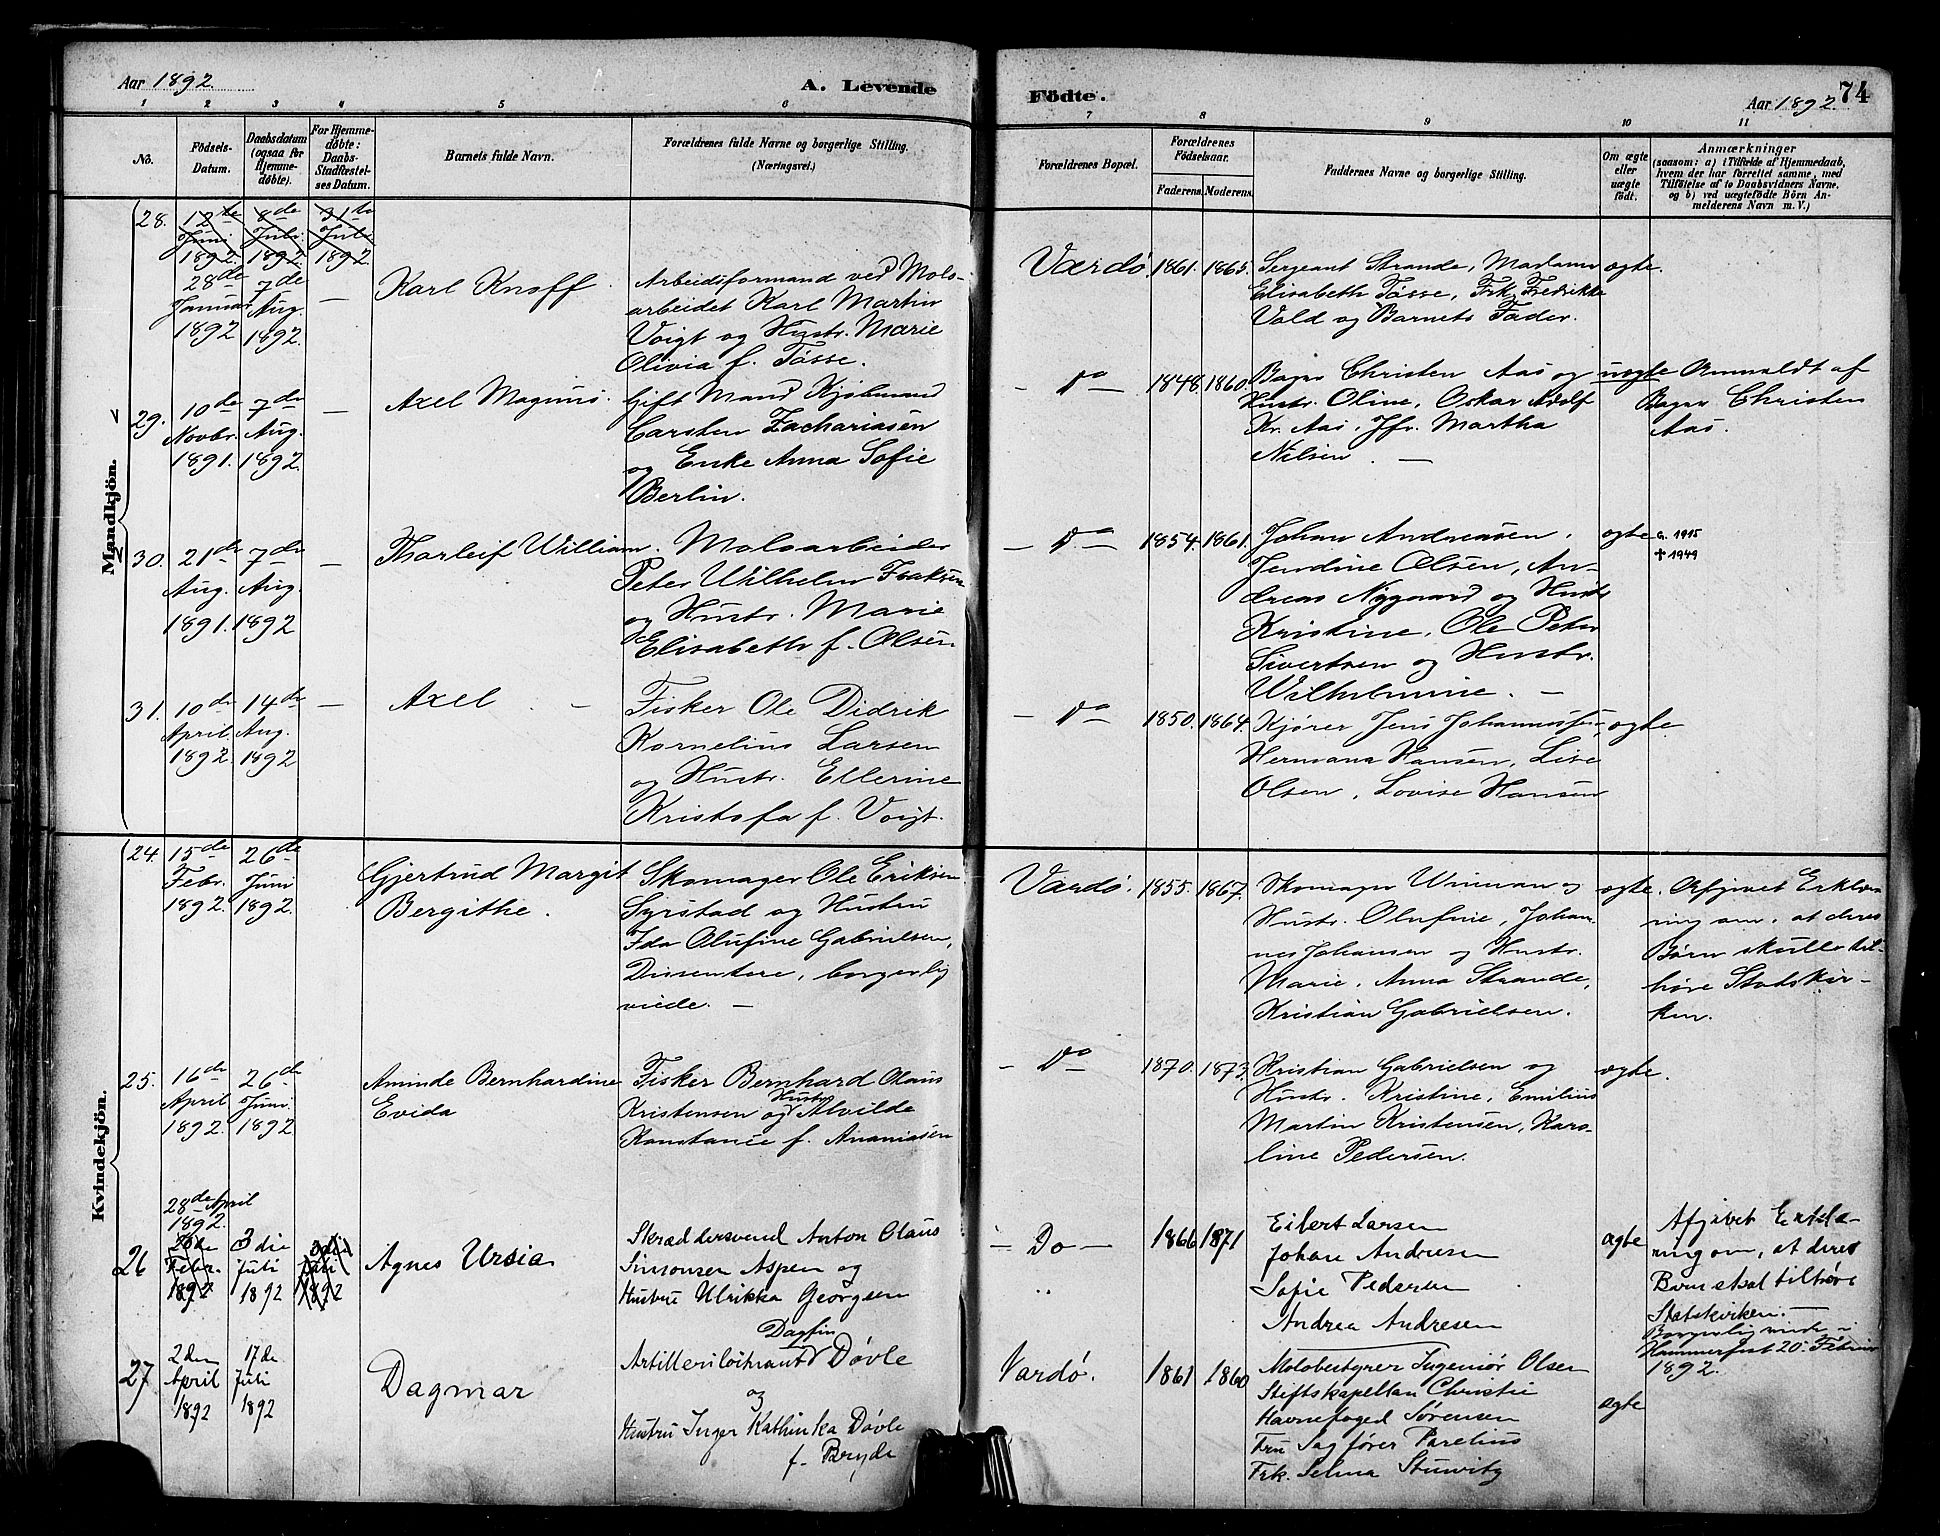 Aar 1892. A. Levende
Födte. Aar 1892. 74
1 2 3 4 5 6 7 8 9 10 11
No.
Födsels-
Datum.
Daabsdatum
(ogsaa for
Hjemme-
døbte).
For Hjemme-
døbte:
Daabs-
Stadfæstel-
ses Datum.
Barnets fulde Navn.
Forældrenes fulde Navne og borgerlige Stilling.
(Næringsvei.)
Forældrenes Bopæl.
Forældrenes
Födselsaar.
Faderens. Moderens.
Faddernes Navne og borgerlige Stilling.
Om ægte
eller
uægte
født.
Anmærkninger
(saasom: a) i Tilfælde af Hjemmedaab,
hvem der har forrettet samme, med
Tilføielse af to Daabsvidners Navne,
og b) ved uægtefødte Börn An-
melderens Navn m. V.)
Mandkjön.
28.
12te
Juni
1892.
28de
Januar
1892
8de
Juli
1892.
7de
Aug.
1892.
31te
Juli
1892.
—
Karl Knoff.
Arbeidsformand ved Molo-
arbeidet Karl Martin
Voigt og Hustr. Marie
Olivia f. Tøsse.
Vardø. 1861. 1865.
Sergeant Strande, Madam
Elisabeth Tøsse, Frk. Fredrikke
Vold og Barnets Fader.
ægte.
29.
10de
Novbr.
1891.
7de
Aug.
1892.
—
Axel Magnus.
Gift Mand Kjøbmand
Carsten Zachariasen
og Enke Anna Sofie
Berlin.
— Do — 1848 1860.
Bager Christen Aas og
Hustr. Oline, Oskar Adolf
Kr. Aas, Jfr. Martha
Nilsen. —
uægte
Anmeldt af
Bager Christen
Aas.
30.
21de
Aug.
1891.
7de
Aug.
1892
—
Thorleif William.
Moloarbeider
Peter Wilhelm Isaksen
og Hustr. Marie
Elisabeth f. Olsen
— Do — 1854. 1861.
Johan Andreasen,
Jendine Olsen, An-
dreas Nygaard og Hustr.
Kristine, Ole Peter
Sivertsen og Hustr.
Wilhelmine. —
ægte
G. 1915
† 1949
31.
10de
April
1892.
14de
Aug.
1892
—
Axel —
Fisker Ole Didrik
Kornelius Larsen
og Hustr. Ellerine
Kristofa f. Voigt.
— Do — 1850. 1864.
Kjører Jens Johannessen,
Hermana Hansen, Lise
Olsen, Lovise Hansen
ægte
Kvindekjön.
24.
15de
Febr.
1892.
26de
Juni
1892.
Gjertrud Margit
Bergithe.
Skomager Ole Eriksen
Syrstad og Hustru
Ida Olufine Gabrielsen,
Dissentere, borgerlig
viede. —
Vardø. 1855. 1867.
Skomager Winman og
Hustr. Olufine, Johan-
nes Johansen og Hustr.
Marie, Anna Strande,
Kristian Gabrielsen.
ægte.
Afgivet Erklæ-
ring om, at deres
Børn skulle til-
høre Statskir-
ken.
25.
16de
April
1892.
26de
Juni
1892
Aminde Bernhardine
Evida
Fisker Bernhard Olaus
Kristensen og Hustr. Alvilde
Konstance f. Ananiasen
— Do — 1870. 1873.
Kristian Gabrielsen og
Hustr. Kristine, Emilius
Martin Kristensen, Karo-
line Pedersen.
ægte.
26
28de April
1892.
Febr.
1892
3die
Juli
1892
3die
Juli
1892
Agnes Ursia
Skræddersvend Anton Olaus
Simonsen Aspen og
Hustru Ulrikka Georgsen
— Do — 1866 1871
Eilert Larsen
Johan Andresen
Sofie Pedersen
Andrea Andresen
ægte
Afgivet Erklæ-
ring om, at deres
Børn skal tilhøre
Statskirken. —
Borgerlig viede i
Hammerfest 20. Februar
1892.
27
2den
April
1892
17de
Juli
1892
Dagmar
Dagfin
Artilleriløitnant Døvle
og
Hustru Inger Kathinka Døvle
f. Bryde
Vardø. 1861 1860
Molobestyrer Ingeniør Olsen
Stiftskapellan Christie
Havnefoged Sørensen
Fru Sagfører Parelius
Frk. Selma Stuwitz
ægte